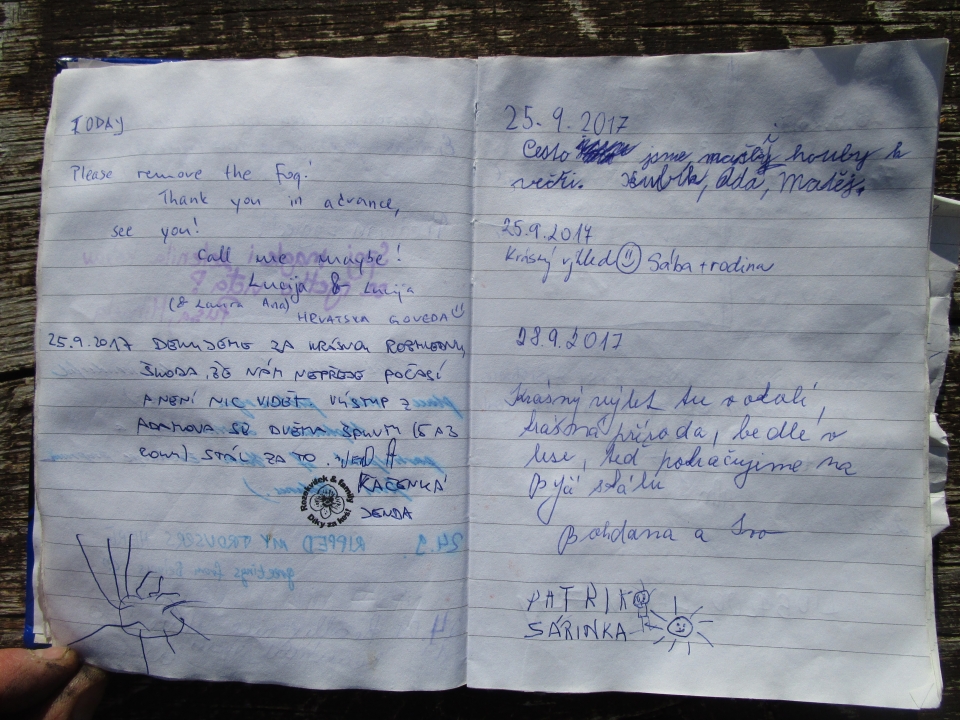 TODAY
Please remove the Fog!
Thank you in advance,
see you!
Call me maybe!
Lucija & Lucija
(& Laura Ana)
HRVATSKA GOVEDA
25.9.2017 DĚKUJEME ZA KRÁSNOU ROZHLEDNU,
ŠKODA, ŽE NÁM NEPŘEJE POČASÍ
A NENÍ NIC VIDĚT. VÝSTUP Z
ADAMOVA SE DVĚMA ŠPUNTY (5 A 3
ROKY) STÁL ZA TO.
KAČENKA
JENDA
Rozekvítek & family
Díky za keš!
24.9. RIPPED MY TROUSERS
greetings from
25.9.2017
Cestou jsme našly houby k
večeři. Kubík, Áďa, Matěj.
25.9.2017
Krásný výhled Sába + rodina
28.9.2017
Krásný výlet tu v okolí,
krásná příroda, bedle v
lese, teď pokračujeme na
Býčí skálu
Bohdana a Ivo
PATRIK
SÁRINKA